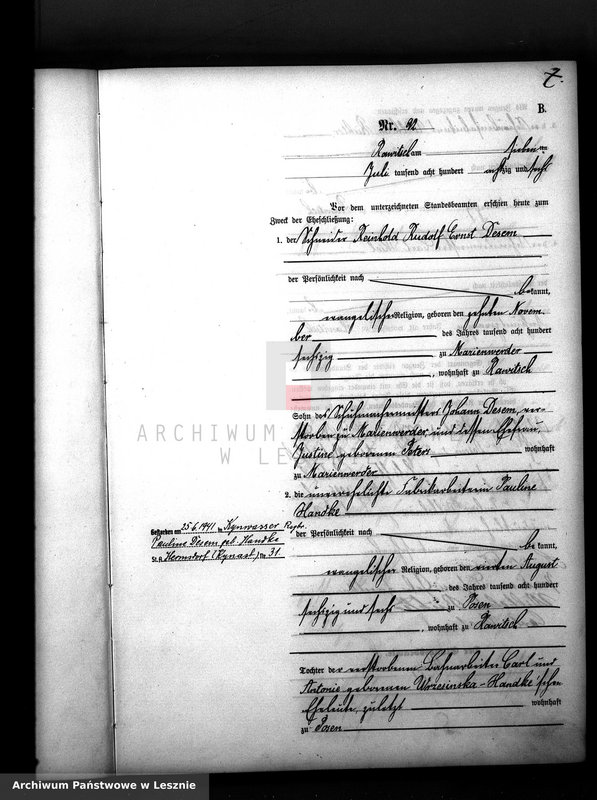 7.
B.
Nr. 92
Rawitsch am sieben ten
Juli tausend acht hundert achtzig und sechs
Vor dem unterzeichneten Standesbeamten erschien heute zum
Zweck der Eheschließung:
1. der Schneider Reinhold Rudolf Ernst Desem
der Persönlichkeit nach
be kannt,
evangelischer Religion, geboren den zehnten Novem
ber des Jahres tausend acht hundert
sechszig zu Marienwerder
, wohnhaft zu Rawitsch
ARCHIWUM
W LE
Sohn des Schuhmachermeisters Johann Desem, ver-
storben zu Marienwerder und dessen Ehefrau
Justine geborenen Peters wohnhaft
zu Marienwerder
2. die unverehelichte Fabrikarbeiterin Pauline
Handke
Gestorben am 25.6.1941 in Kynwasser Rsgb.
Pauline Desem geb. Handke
St.A. Hermsdorf (Kynast) Nr. 31
der Persönlichkeit nach
be kannt,
evangelischer Religion, geboren den vierten August
des Jahres tausend acht hundert
sechszig und sechs zu Posen
, wohnhaft zu Rawitsch
Tochter der verstorbenen Bahnarbeiter Carl und
Antonie geborenen Wrzesinska-Handke'schen
Eheleute, zuletzt wohnhaft
zu Posen
Archiwum Państwowe w Lesznie